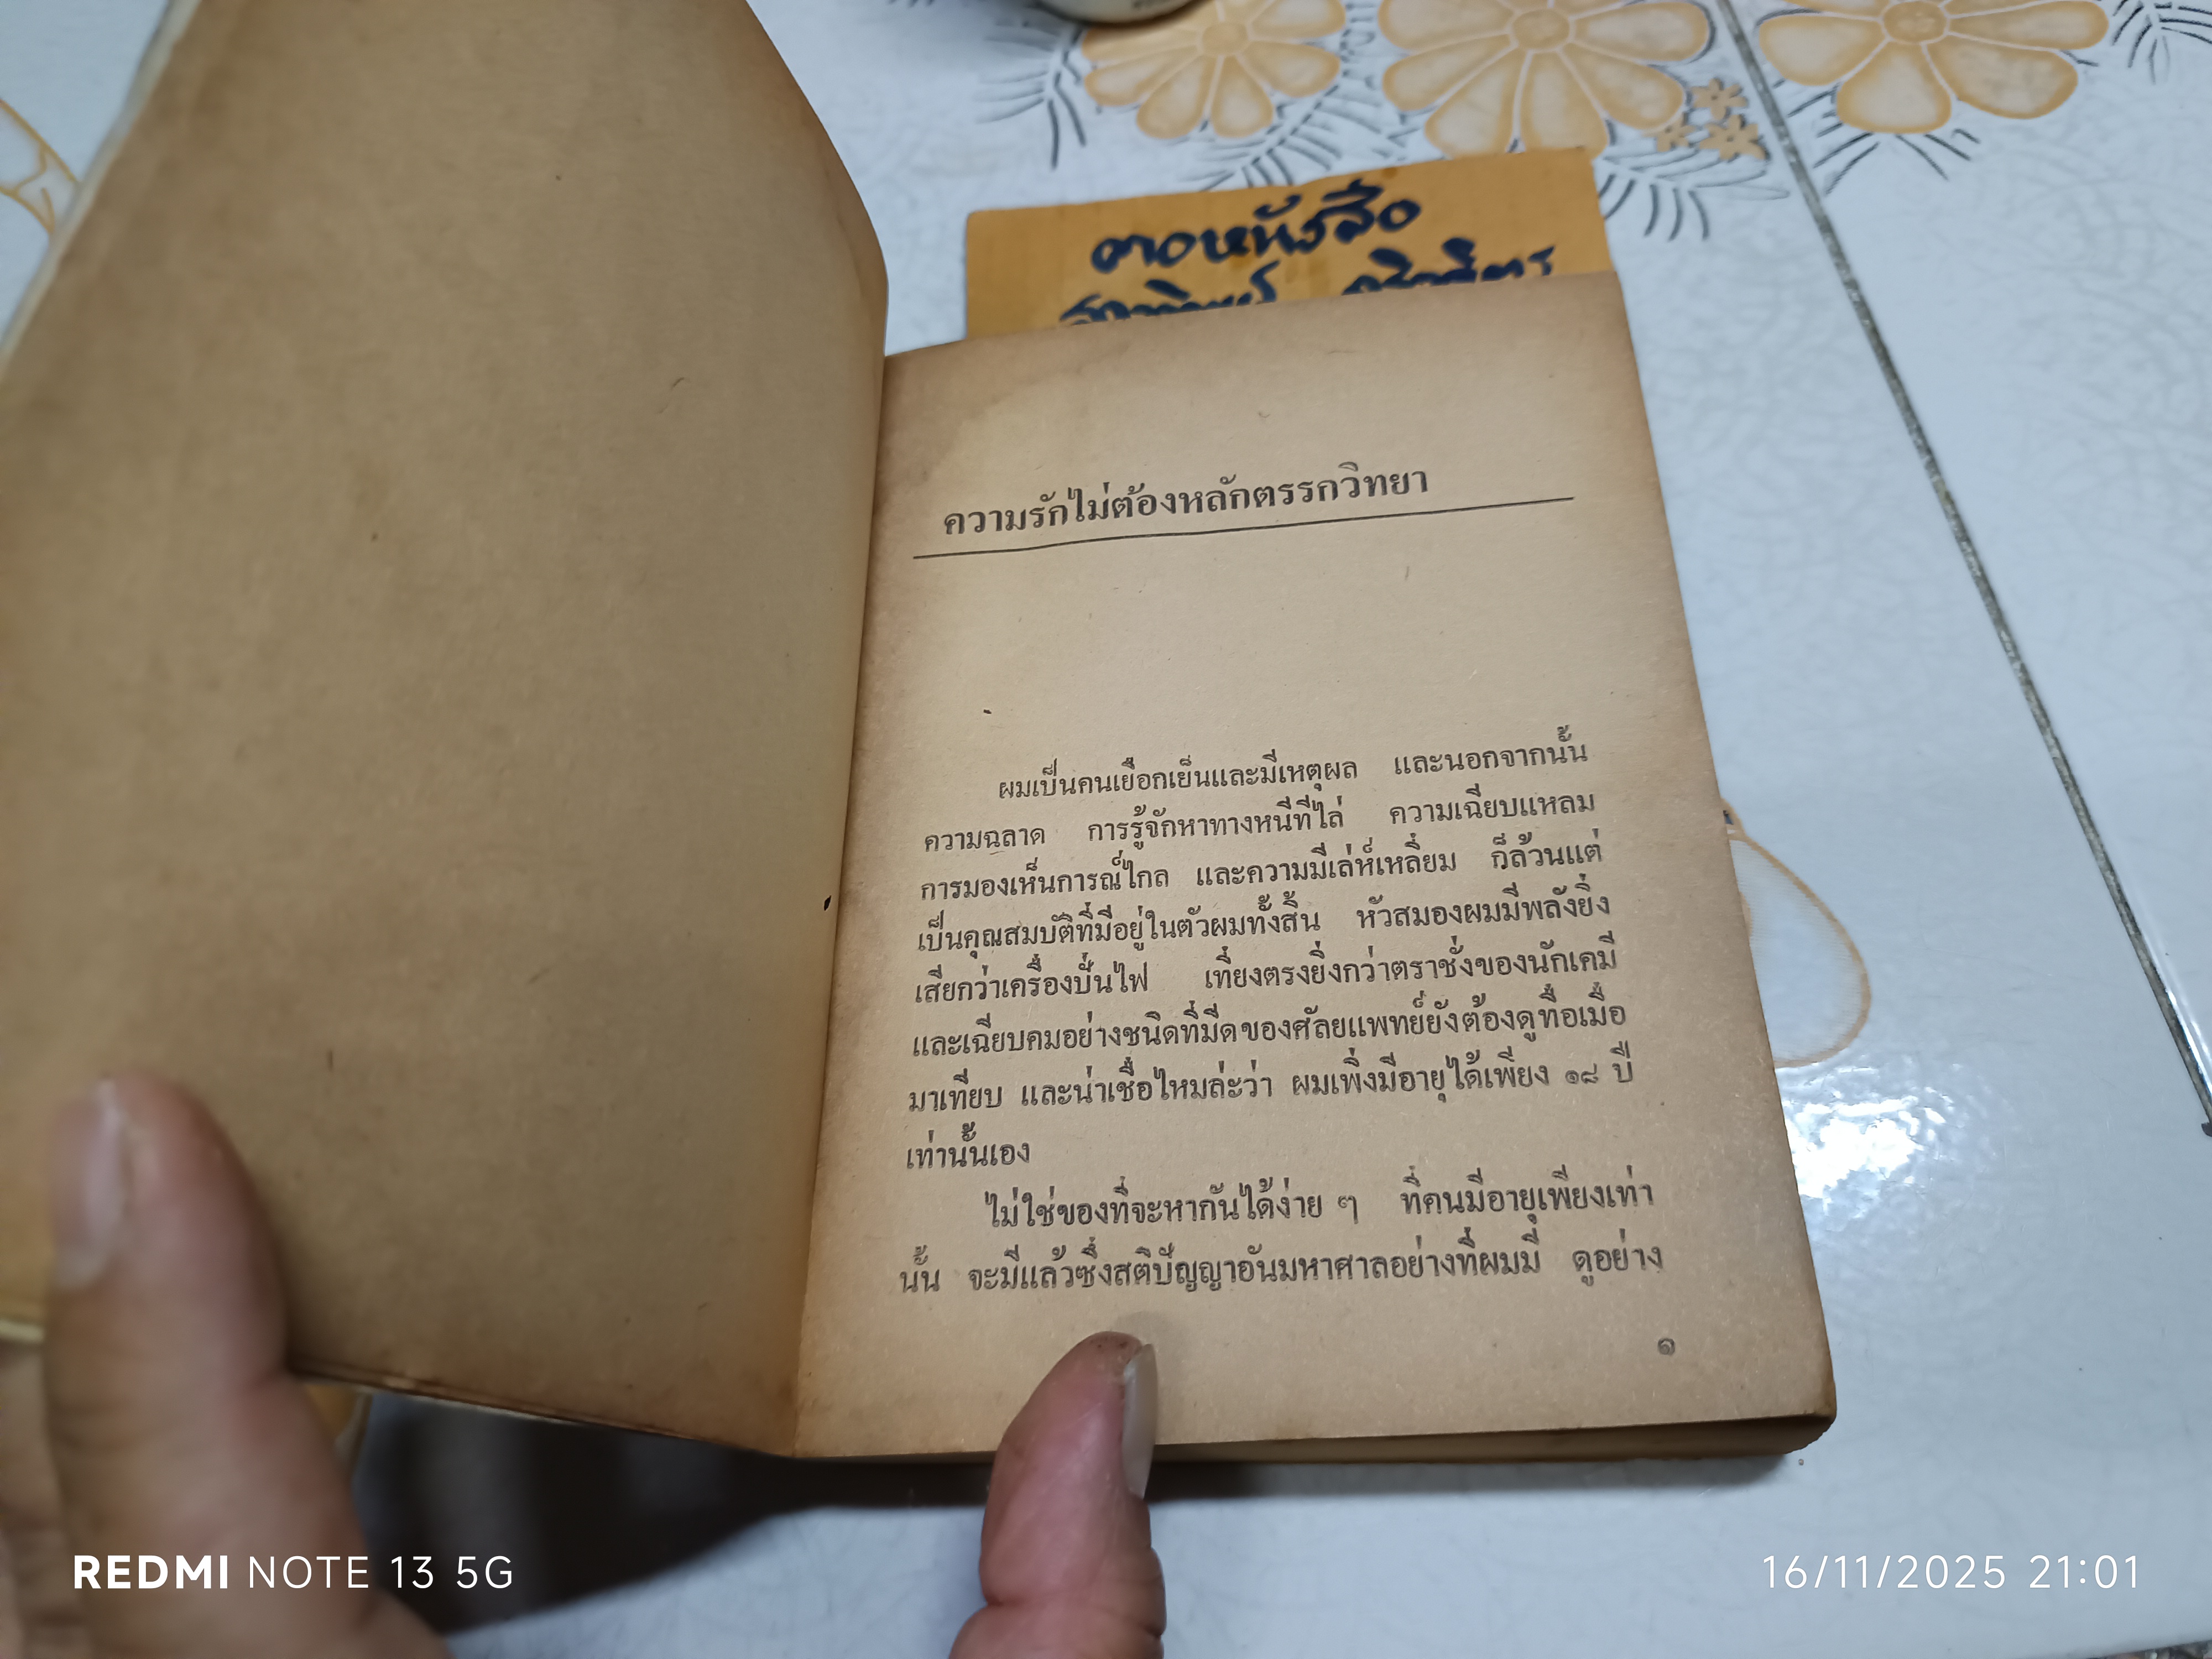 คอหนังสือ
ความรักไม่ต้องหลักตรรกวิทยา
ผมเป็นคนเยือกเย็นและมีเหตุผล และนอกจากนั้น
ความฉลาด การรู้จักหาทางหนีทีไล่ ความเฉียบแหลม
การมองเห็นการณ์ไกล และความมีเล่ห์เหลี่ยม ก็ล้วนแต่
เป็นคุณสมบัติที่มีอยู่ในตัวผมทั้งสิ้น หัวสมองผมมีพลังยิ่ง
เสียกว่าเครื่องปั่นไฟ เที่ยงตรงยิ่งกว่าตราชั่งของนักเคมี
และเฉียบคมอย่างชนิดที่มีดของศัลยแพทย์ยังต้องดูทื่อเมื่อ
มาเทียบ และน่าเชื่อไหมล่ะว่า ผมเพิ่งมีอายุได้เพียง ๑๘ ปี
เท่านั้นเอง
ไม่ใช่ของที่จะหากันได้ง่าย ๆ ที่คนมีอายุเพียงเท่า
นั้น จะมีแล้วซึ่งสติปัญญาอันมหาศาลอย่างที่ผมมี ดูอย่าง
๑
REDMI NOTE 13 5G
16/11/2025 21:01